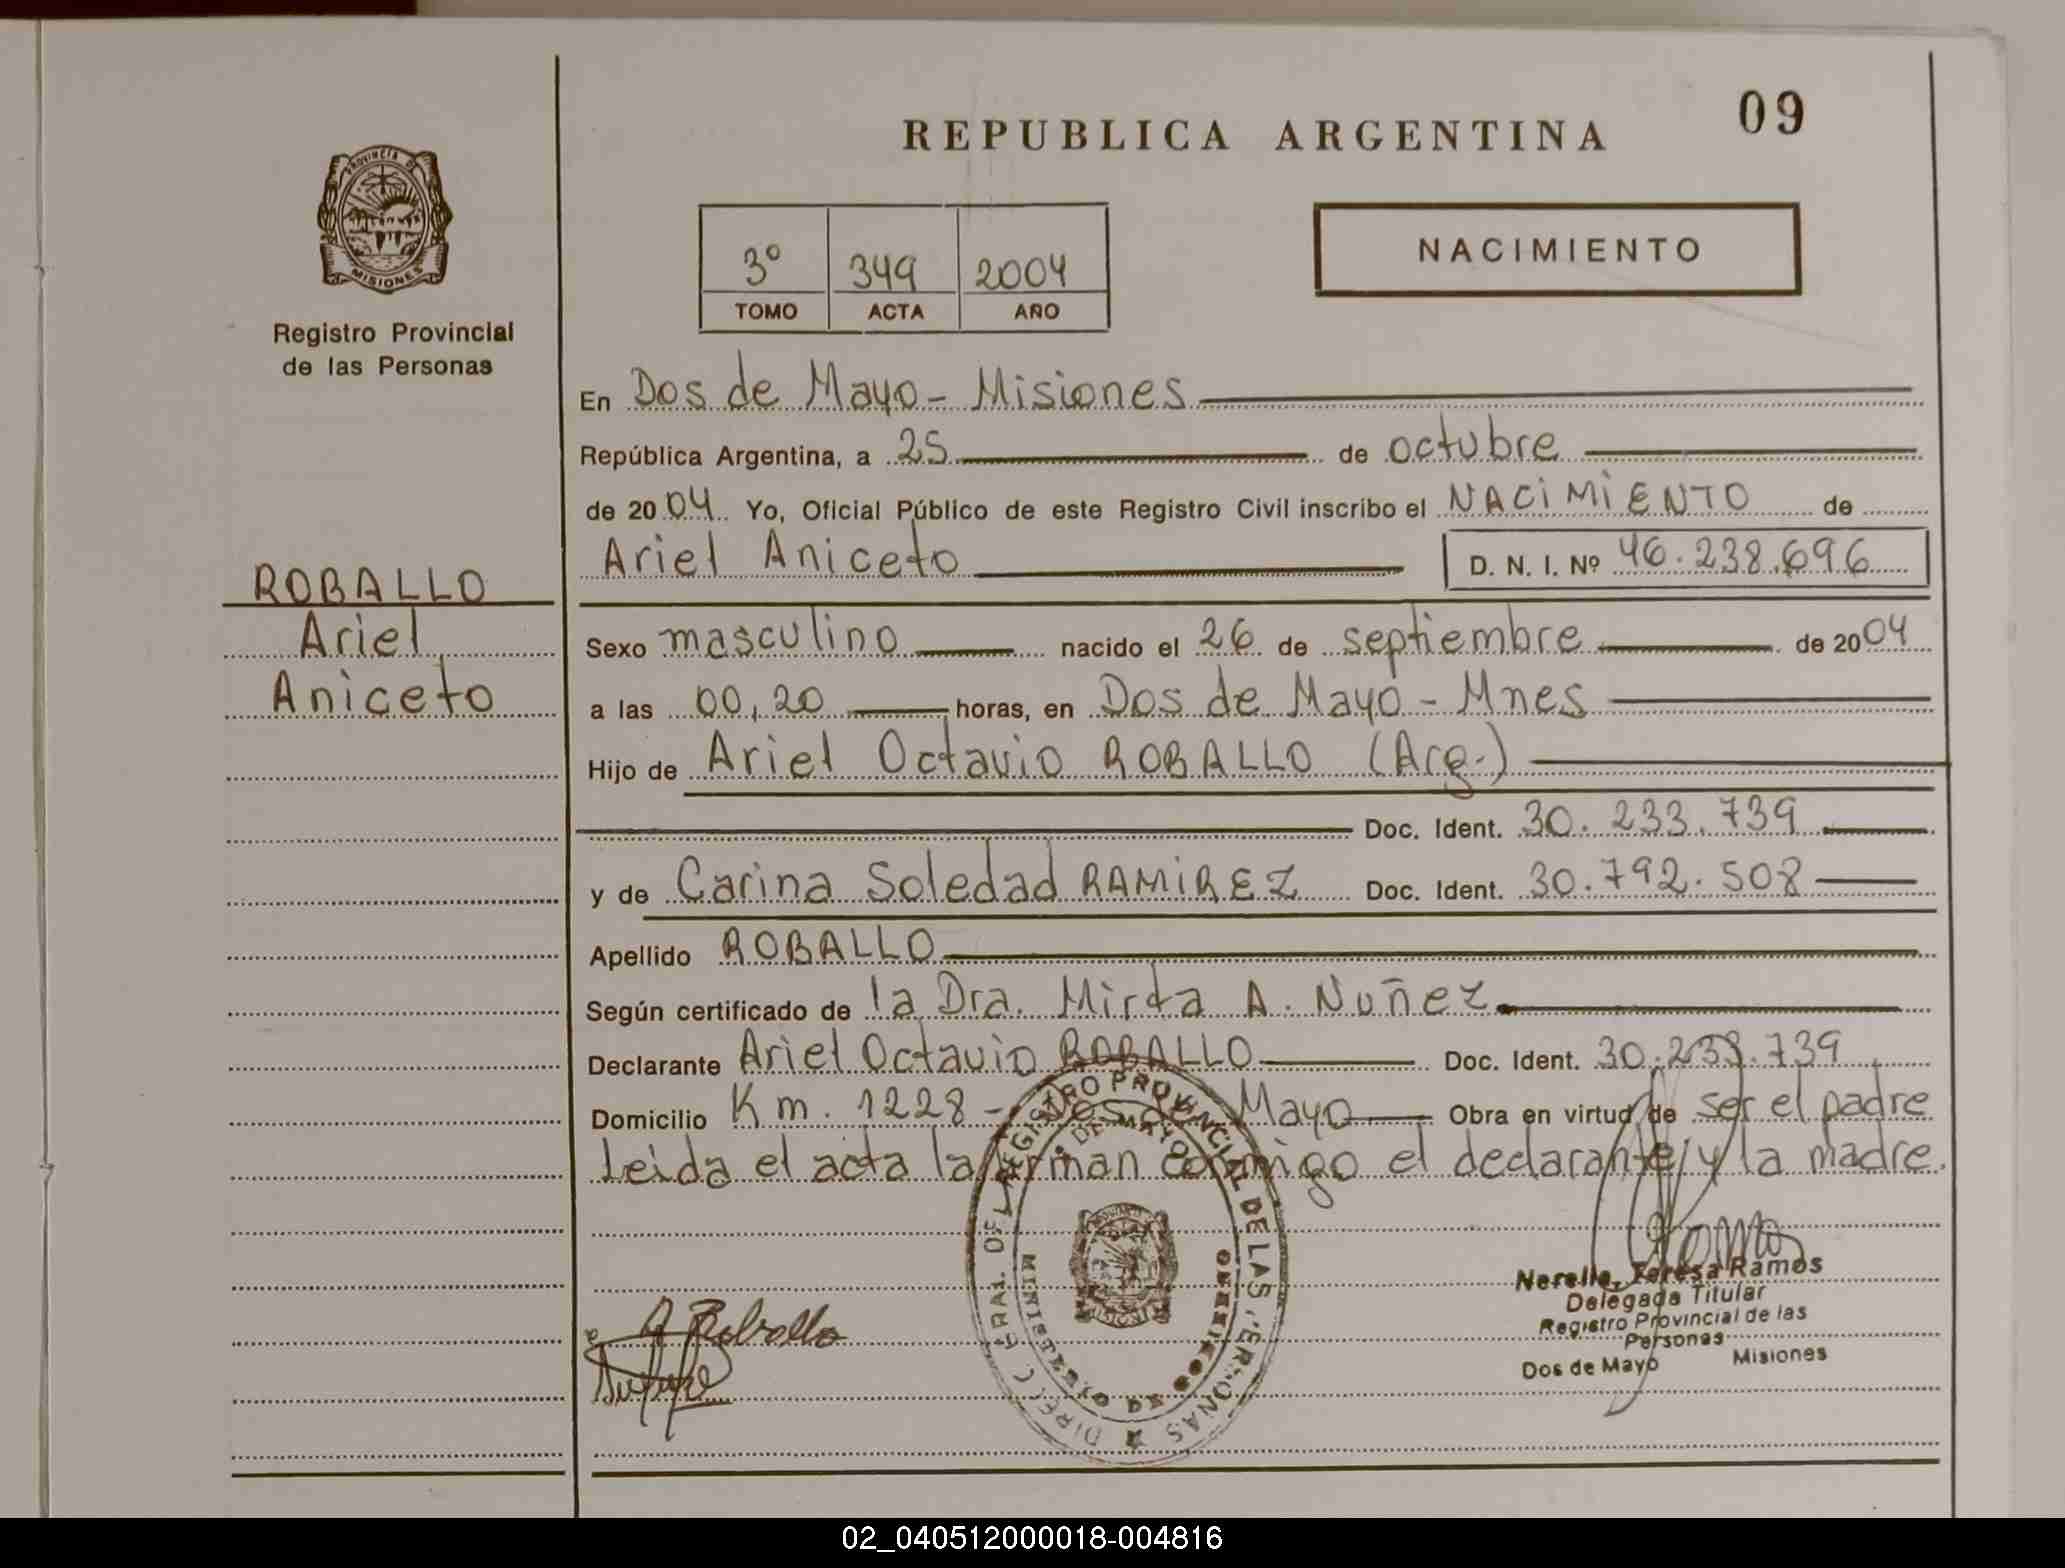 09
REPUBLICA ARGENTINA
PROVINCIA DE
MISIONES
Registro Provincial
de las Personas
NACIMIENTO
3º 349 2004
TOMO ACTA AÑO
En Dos de Mayo - Misiones
República Argentina, a 25 de octubre
de 2004 Yo, Oficial Público de este Registro Civil inscribo el NACIMIENTO de
Ariel Aniceto D. N. I. Nº 46.238.696
ROBALLO
Ariel
Aniceto
Sexo masculino nacido el 26 de septiembre de 2004
a las 00,20 horas, en Dos de Mayo - Mnes
Hijo de Ariel Octavio ROBALLO (Arg.)
Doc. Ident. 30.233.739
y de Carina Soledad RAMIREZ Doc. Ident. 30.792.508
Apellido ROBALLO
Según certificado de la Dra. Mirta A. Nuñez
Declarante Ariel Octavio ROBALLO Doc. Ident. 30.233.739
Domicilio Km. 1228 - Dos de Mayo Obra en virtud de ser el padre
Leida el acta la firman conmigo el declarante y la madre.
REGISTRO PROVINCIAL DE LAS PERSONAS
DE MAYO
MINISTERIO DE GOBIERNO
Roballo
Nerella Teresa Ramos
Delegada Titular
Registro Provincial de las
Personas
Dos de Mayo Misiones
02_040512000018-004816